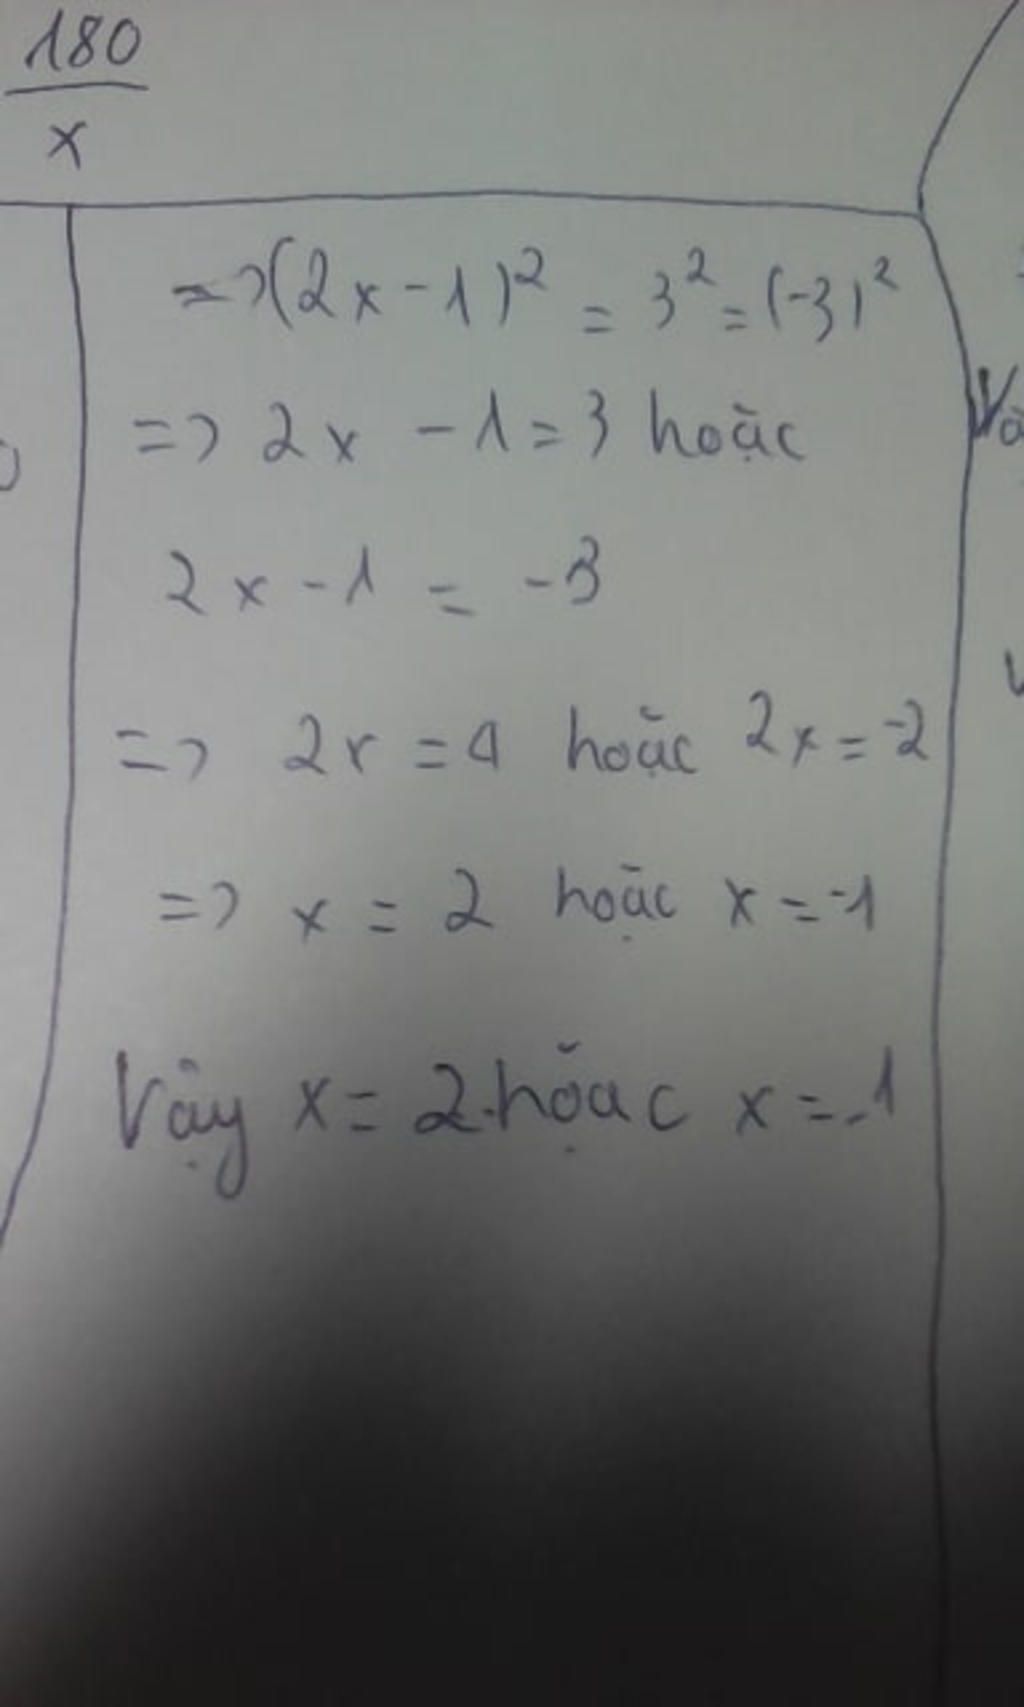 180
x
=> (2x - 1)² = 3² = (-3)²
=> 2x - 1 = 3 hoặc
2x - 1 = -3
=> 2x = 4 hoặc 2x = -2
=> x = 2 hoặc x = -1
Vậy x = 2 hoặc x = -1